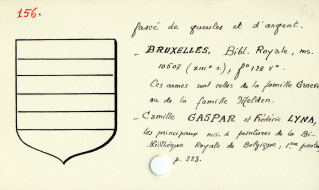 156.
fascé de gueules et d'argent.
- BRUXELLES. Bibl. Royale, ms.
10607 (XIIIe s.), f° 128 v°.
Ces armes sont celles de la famille
ou de la famille Melden.
- Camille GASPAR et Frédéric LYNA,
les principaux ms. à peintures de la Bi-
bliothèque Royale de Belgique, 1ère partie
p. 223.